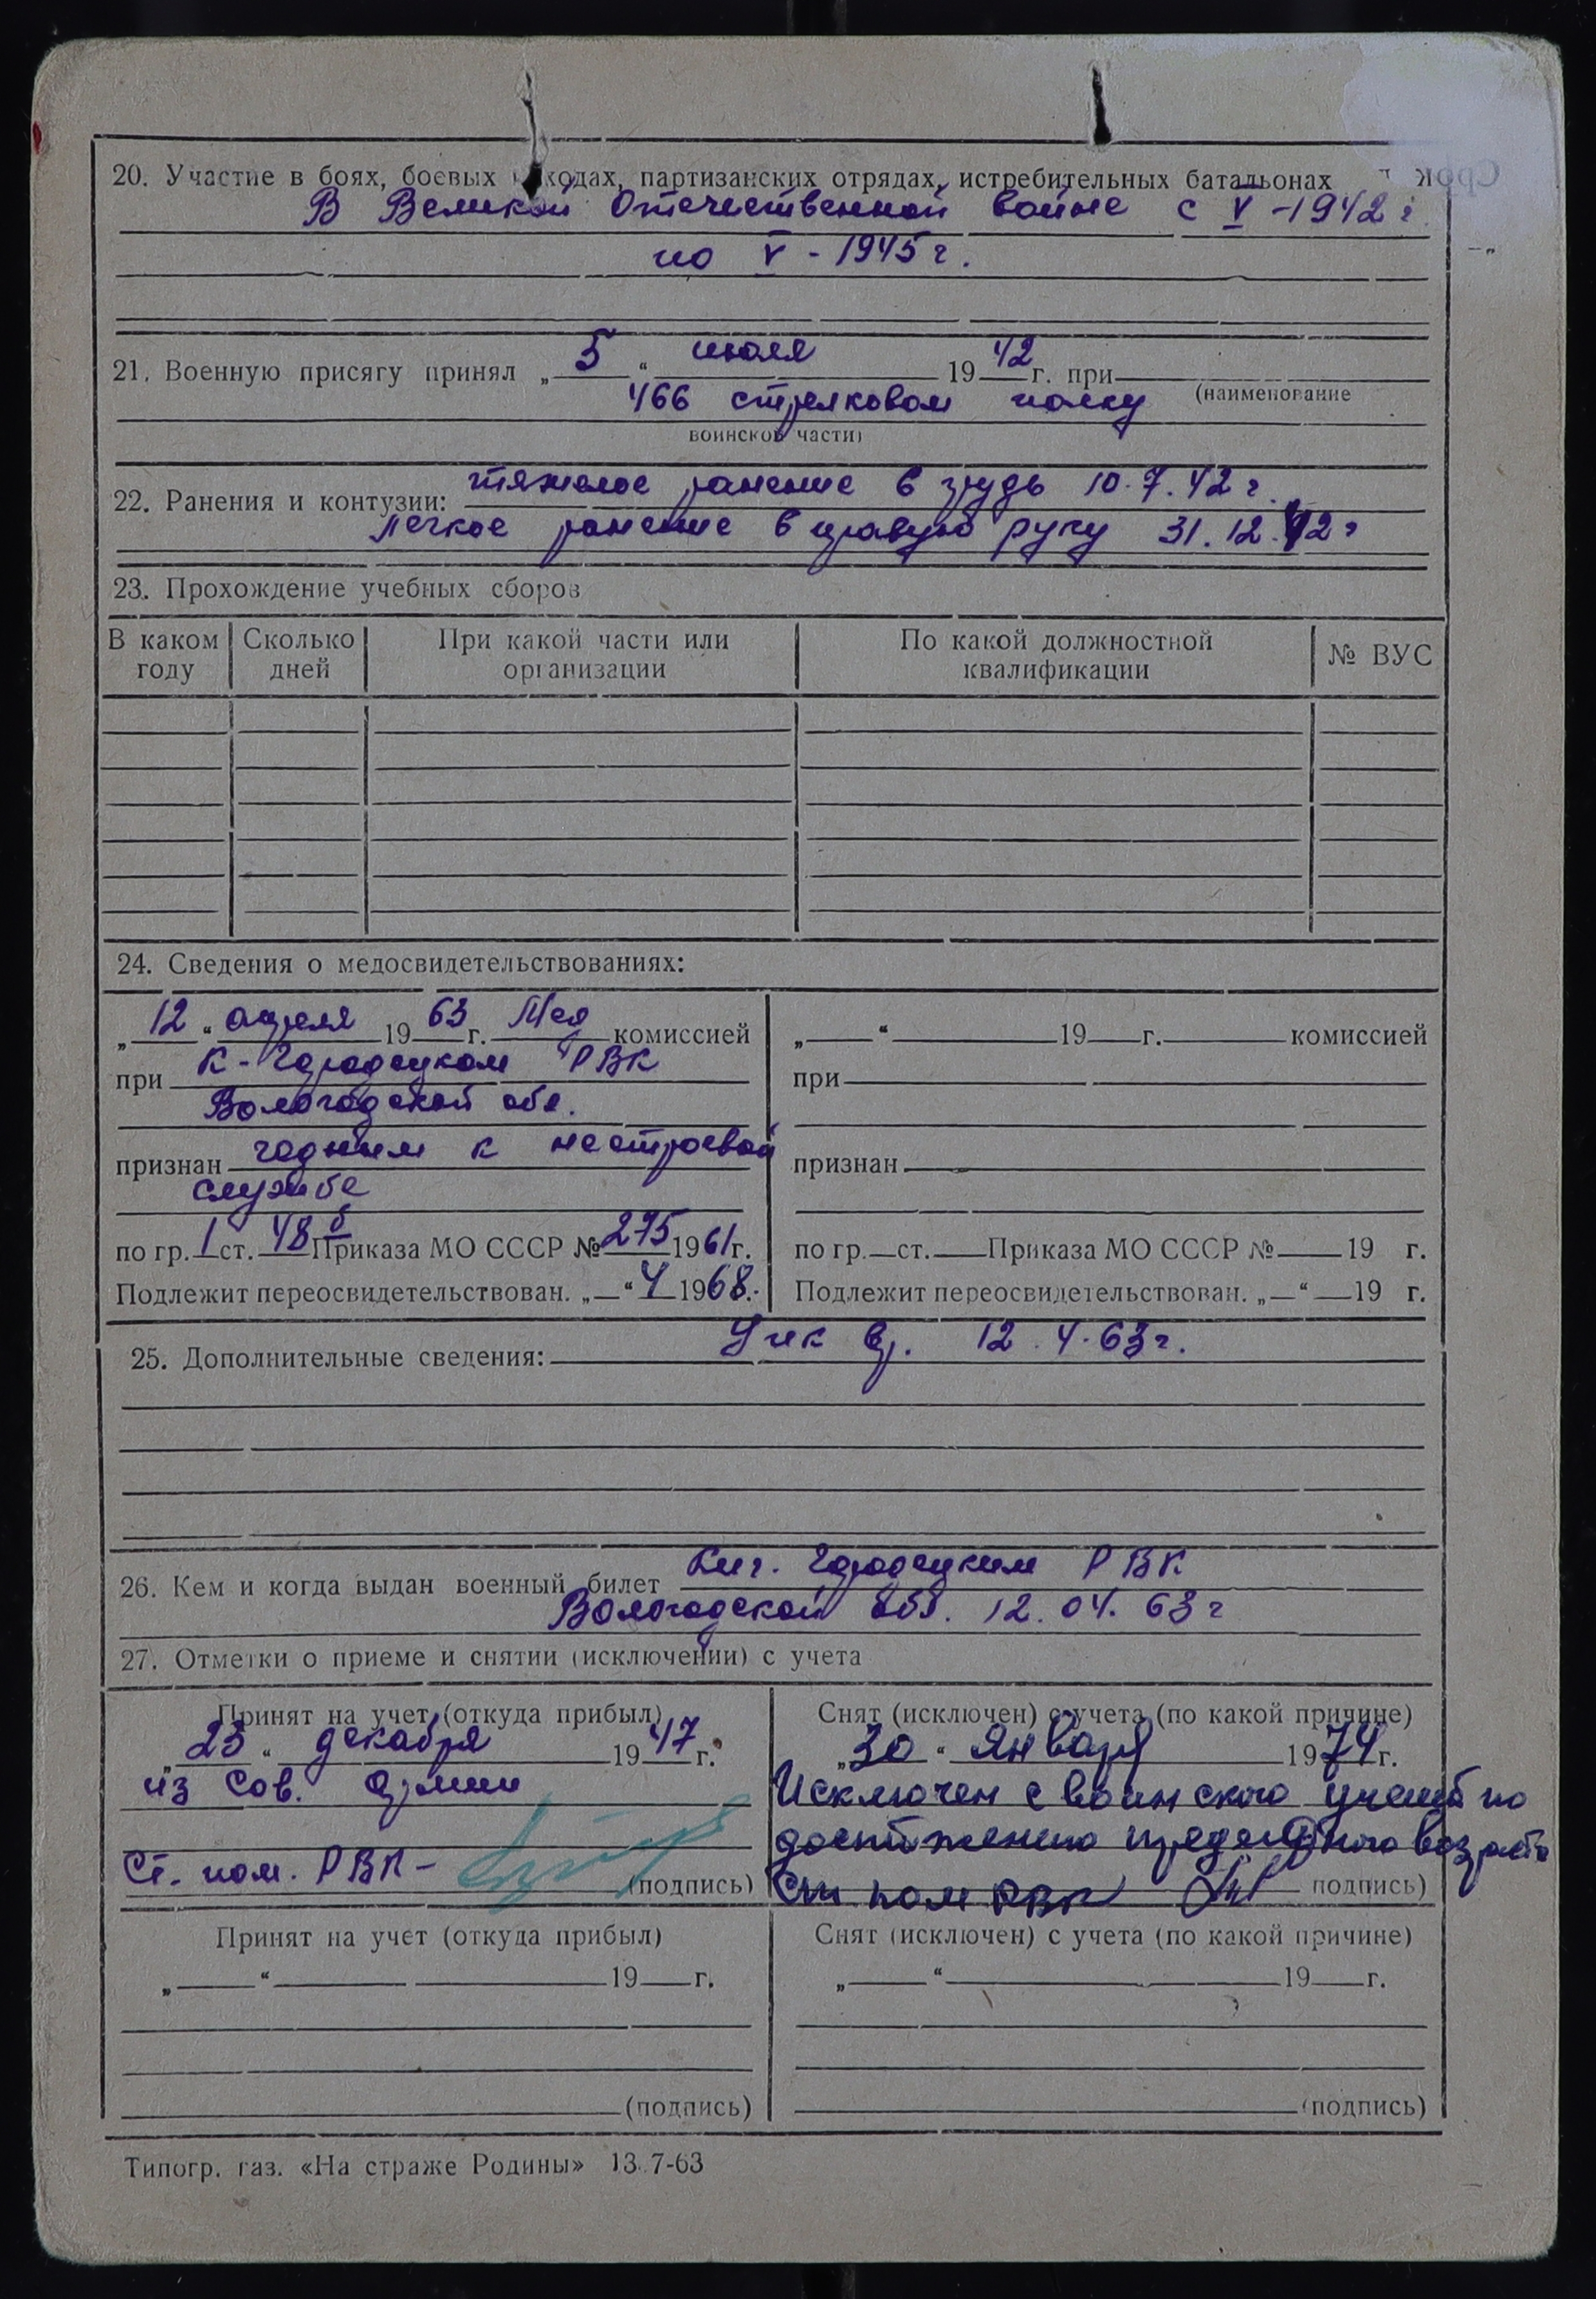 20. Участие в боях, боевых походах, партизанских отрядах, истребительных батальонах
В Великой Отечественной войне с V-1942 г.
по V-1945 г.
21. Военную присягу принял „5“ июля 1942 г. при
466 стрелковом полку (наименование
воинской части)
22. Ранения и контузии: тяжелое ранение в грудь 10.7.42 г.
легкое ранение в правую руку 31.12.42 г
23. Прохождение учебных сборов
В каком году
Сколько дней
При какой части или организации
По какой должностной квалификации
№ ВУС
24. Сведения о медосвидетельствованиях:
„12“ апреля 1963 г. Мед комиссией
при К-Городецком РВК
Вологодской обл.
признан годным к нестроевой
службе
по гр. I ст. 48 б Приказа МО СССР № 275 1961 г.
Подлежит переосвидетельствован. „ “ 4 1968.
„ “ 19 г. комиссией
при
признан
по гр. ст. Приказа МО СССР № 19 г.
Подлежит переосвидетельствован. „ “ 19 г.
25. Дополнительные сведения: 12.4.63 г.
26. Кем и когда выдан военный билет Кич. Городецким РВК
Вологодской обл. 12.04.63 г
27. Отметки о приеме и снятии (исключении) с учета
Принят на учет (откуда прибыл)
„23“ декабря 1947 г.
из Сов. Армии
Ст. пом. РВК- (подпись)
Снят (исключен) с учета (по какой причине)
„30“ января 1974 г.
Исключен с воинского учета по
достижению предельного возраста
Ст пом РВК (подпись)
Принят на учет (откуда прибыл)
„ “ 19 г.
(подпись)
Снят (исключен) с учета (по какой причине)
„ “ 19 г.
(подпись)
Типогр. газ. «На страже Родины» 13.7-63